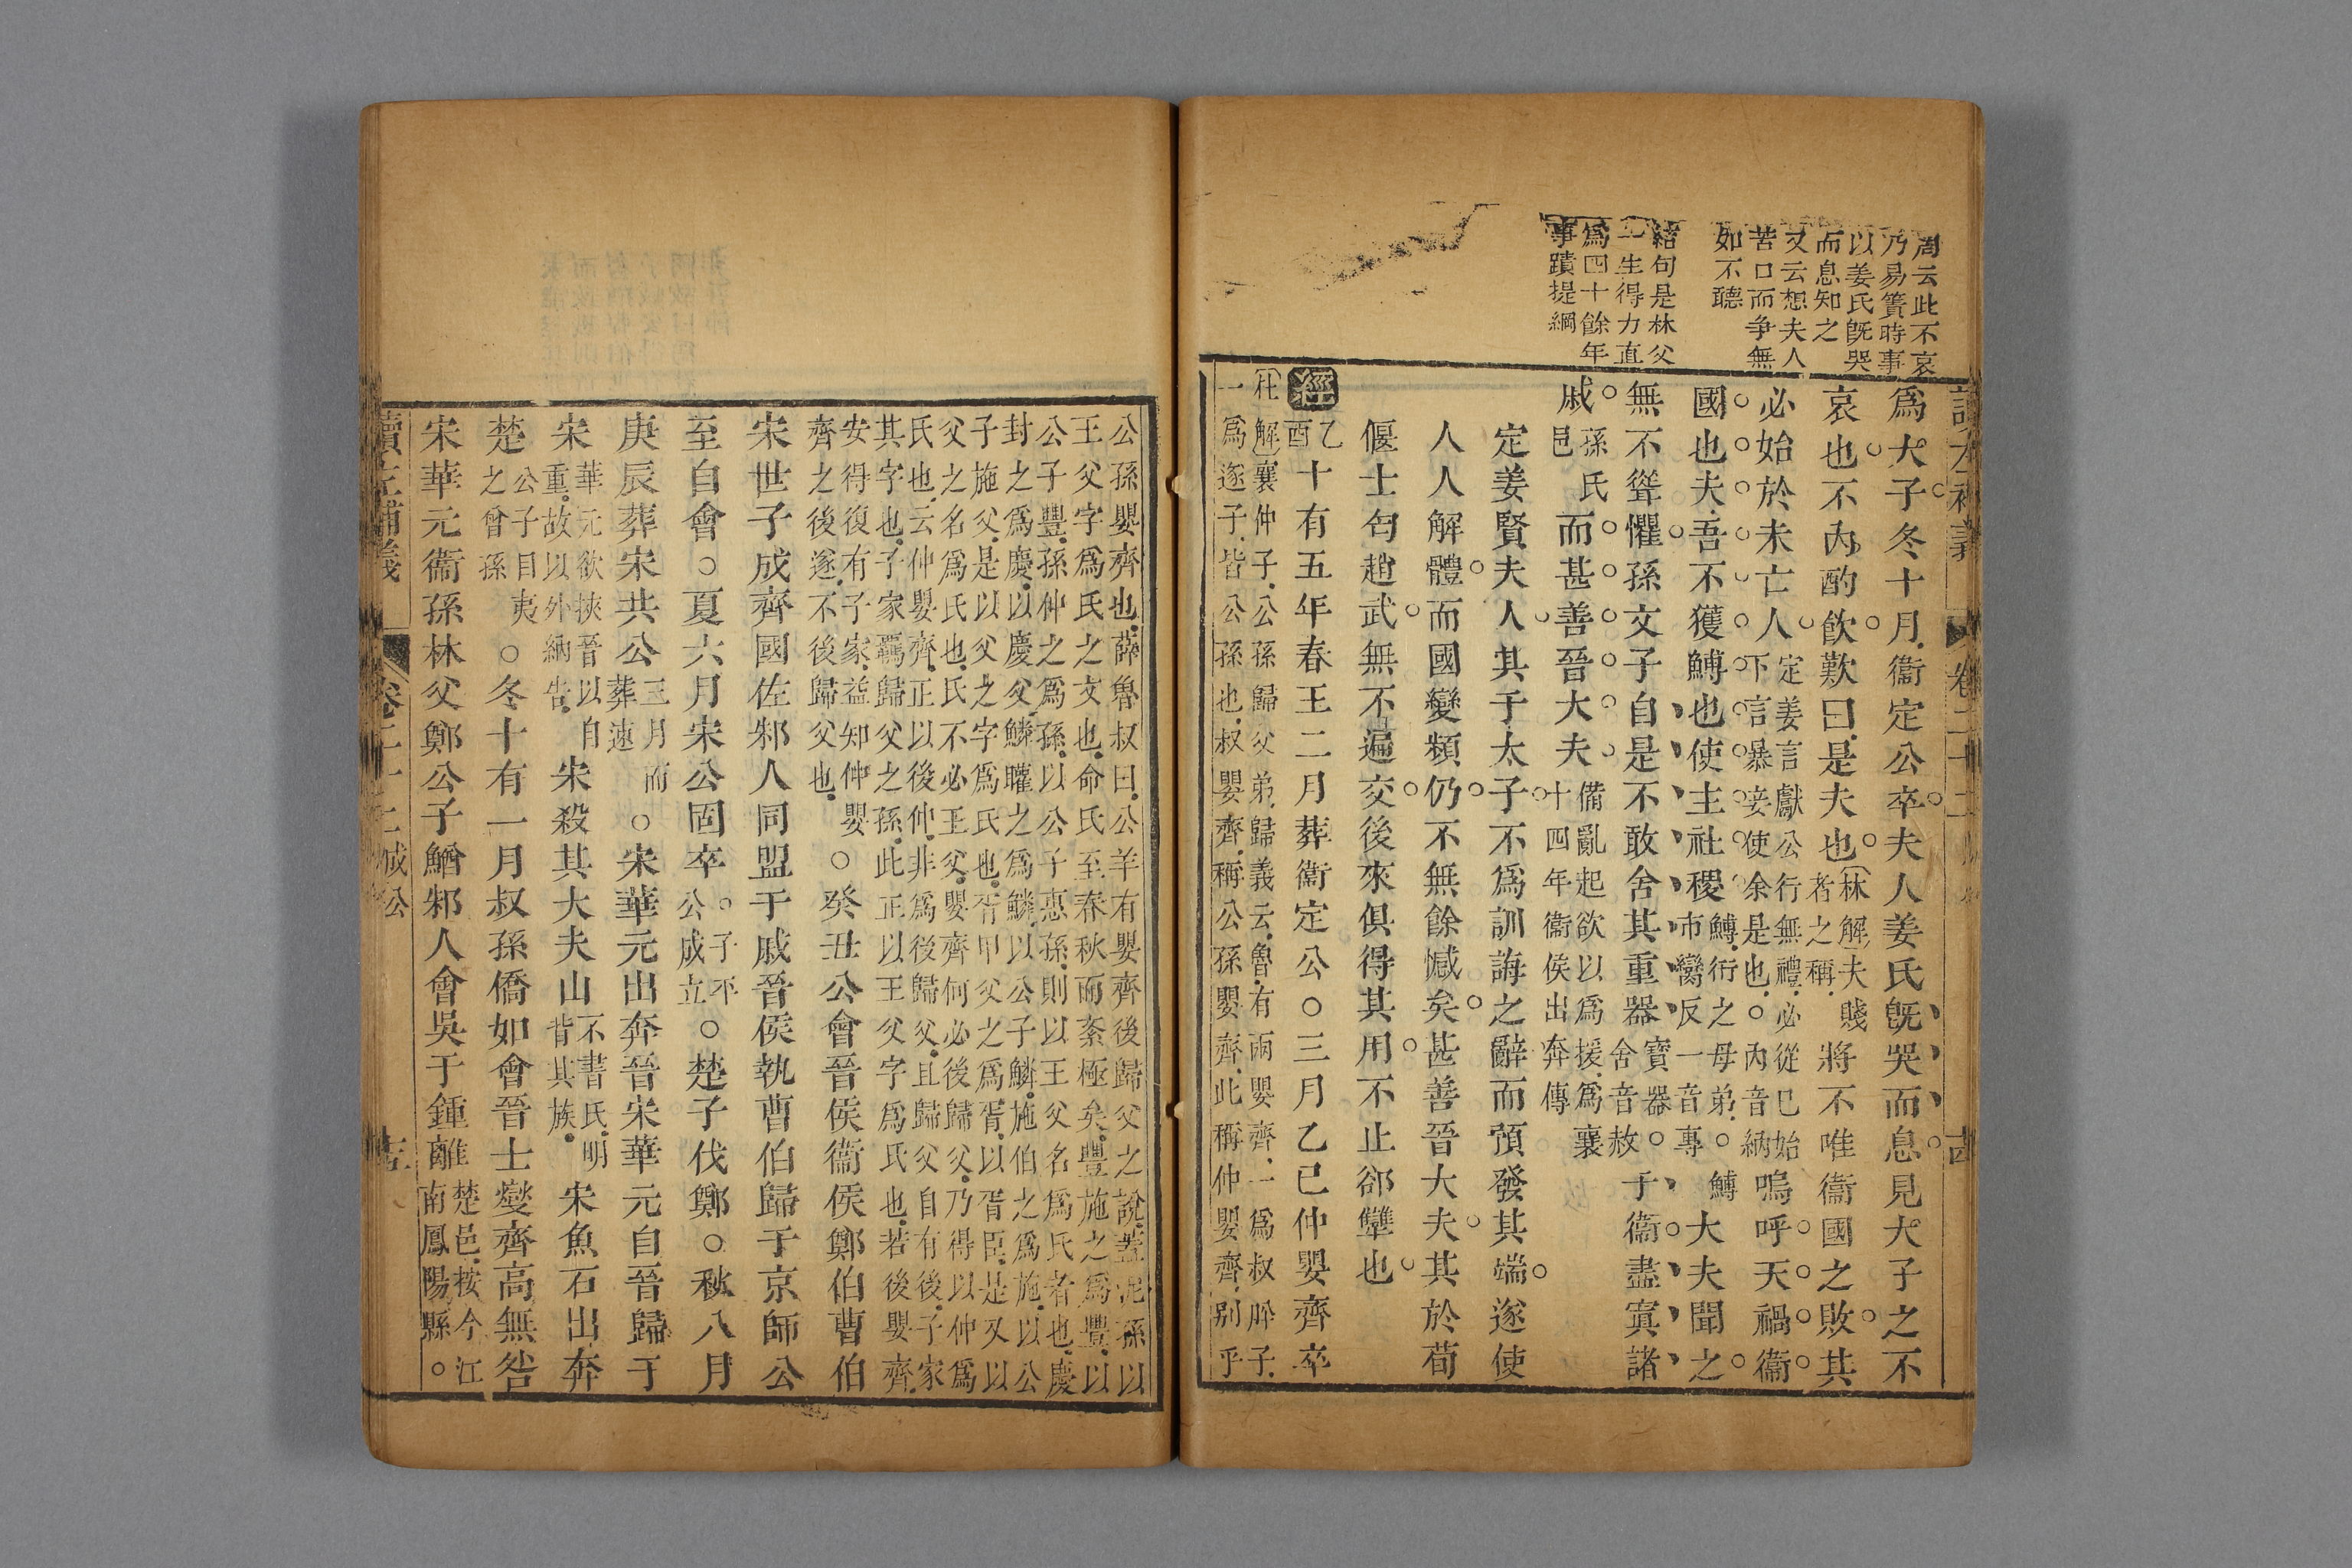 周云此不哀
乃易簀時事
以姜氏旣哭
而息知之
又云想夫人
苦口而爭無
如不聽
結句是林父
一生得力直
爲四十餘年
事蹟提綱
爲大子冬十月衞定公卒夫人姜氏旣哭而息見大子之不
哀也不內酌飮歎曰是夫也
林解夫賤
者之稱
將不唯衞國之敗其
必始於未亡人
定姜言獻公行無禮必從巳始
下言暴妾使余是也○內音納
嗚呼天禍衞
國也夫吾不獲鱄也使主社稷
鱄衎之母弟○鱄
市臠反一音專
大夫聞之
無不聳懼孫文子自是不敢舍其重器
寶器○
舍音赦
于衞盡寘諸
戚
孫氏
邑
而甚善晉大夫
備亂起欲以爲援爲襄
十四年衞侯出奔傳
定姜賢夫人其于太子不爲訓誨之辭而預發其端遂使
人人解體而國變頻仍不無餘憾矣甚善晉大夫其於荀
偃士匄趙武無不遍交後來俱得其用不止郤犫也
經
乙
酉
十有五年春王二月葬衞定公○三月乙巳仲嬰齊卒
杜解襄仲子公孫歸父弟歸義云魯有兩嬰齊一爲叔肸子
一爲遂子皆公孫也叔嬰齊稱公孫嬰齊此稱仲嬰齊別乎
公孫嬰齊也薛魯叔曰公羊有嬰齊後歸父之說蓋泥孫以
王父字爲氏之文也命氏至春秋而紊極矣豐施之爲豐以
公子豐孫仲之爲孫以公子惠孫則以王父名爲氏者也慶
封之爲慶以慶父鱗矔之爲鱗以公子鱗施伯之爲施以公
子施父是以父之字爲氏也胥甲父之爲胥以胥臣是又以
父之名爲氏也氏不必王父嬰齊何必後歸父乃得以仲爲
氏也云仲嬰齊正以後仲非爲後歸父且歸父自有後子家
其字也子家羈歸父之孫此正以王父字爲氏也若後嬰齊
安得復有子家益知仲嬰
齊之後遂不後歸父也
○癸丑公會晉侯衞侯鄭伯曹伯
宋世子成齊國佐邾人同盟于戚晉侯執曹伯歸于京師公
至自會○夏六月宋公固卒
○子平
公成立
○楚子伐鄭○秋八月
庚辰葬宋共公
三月而
葬速
○宋華元出奔晉宋華元自晉歸于
宋
華元欲挾晉以自
重故以外納告
宋殺其大夫山
不書氏明
背其族
宋魚石出奔
楚
公子目夷
之曾孫
○冬十有一月叔孫僑如會晉士燮齊高無咎
宋華元衞孫林父鄭公子鰌邾人會吳于鍾離
楚邑按今江
南鳳陽縣○
讀左補義
卷二十二成公